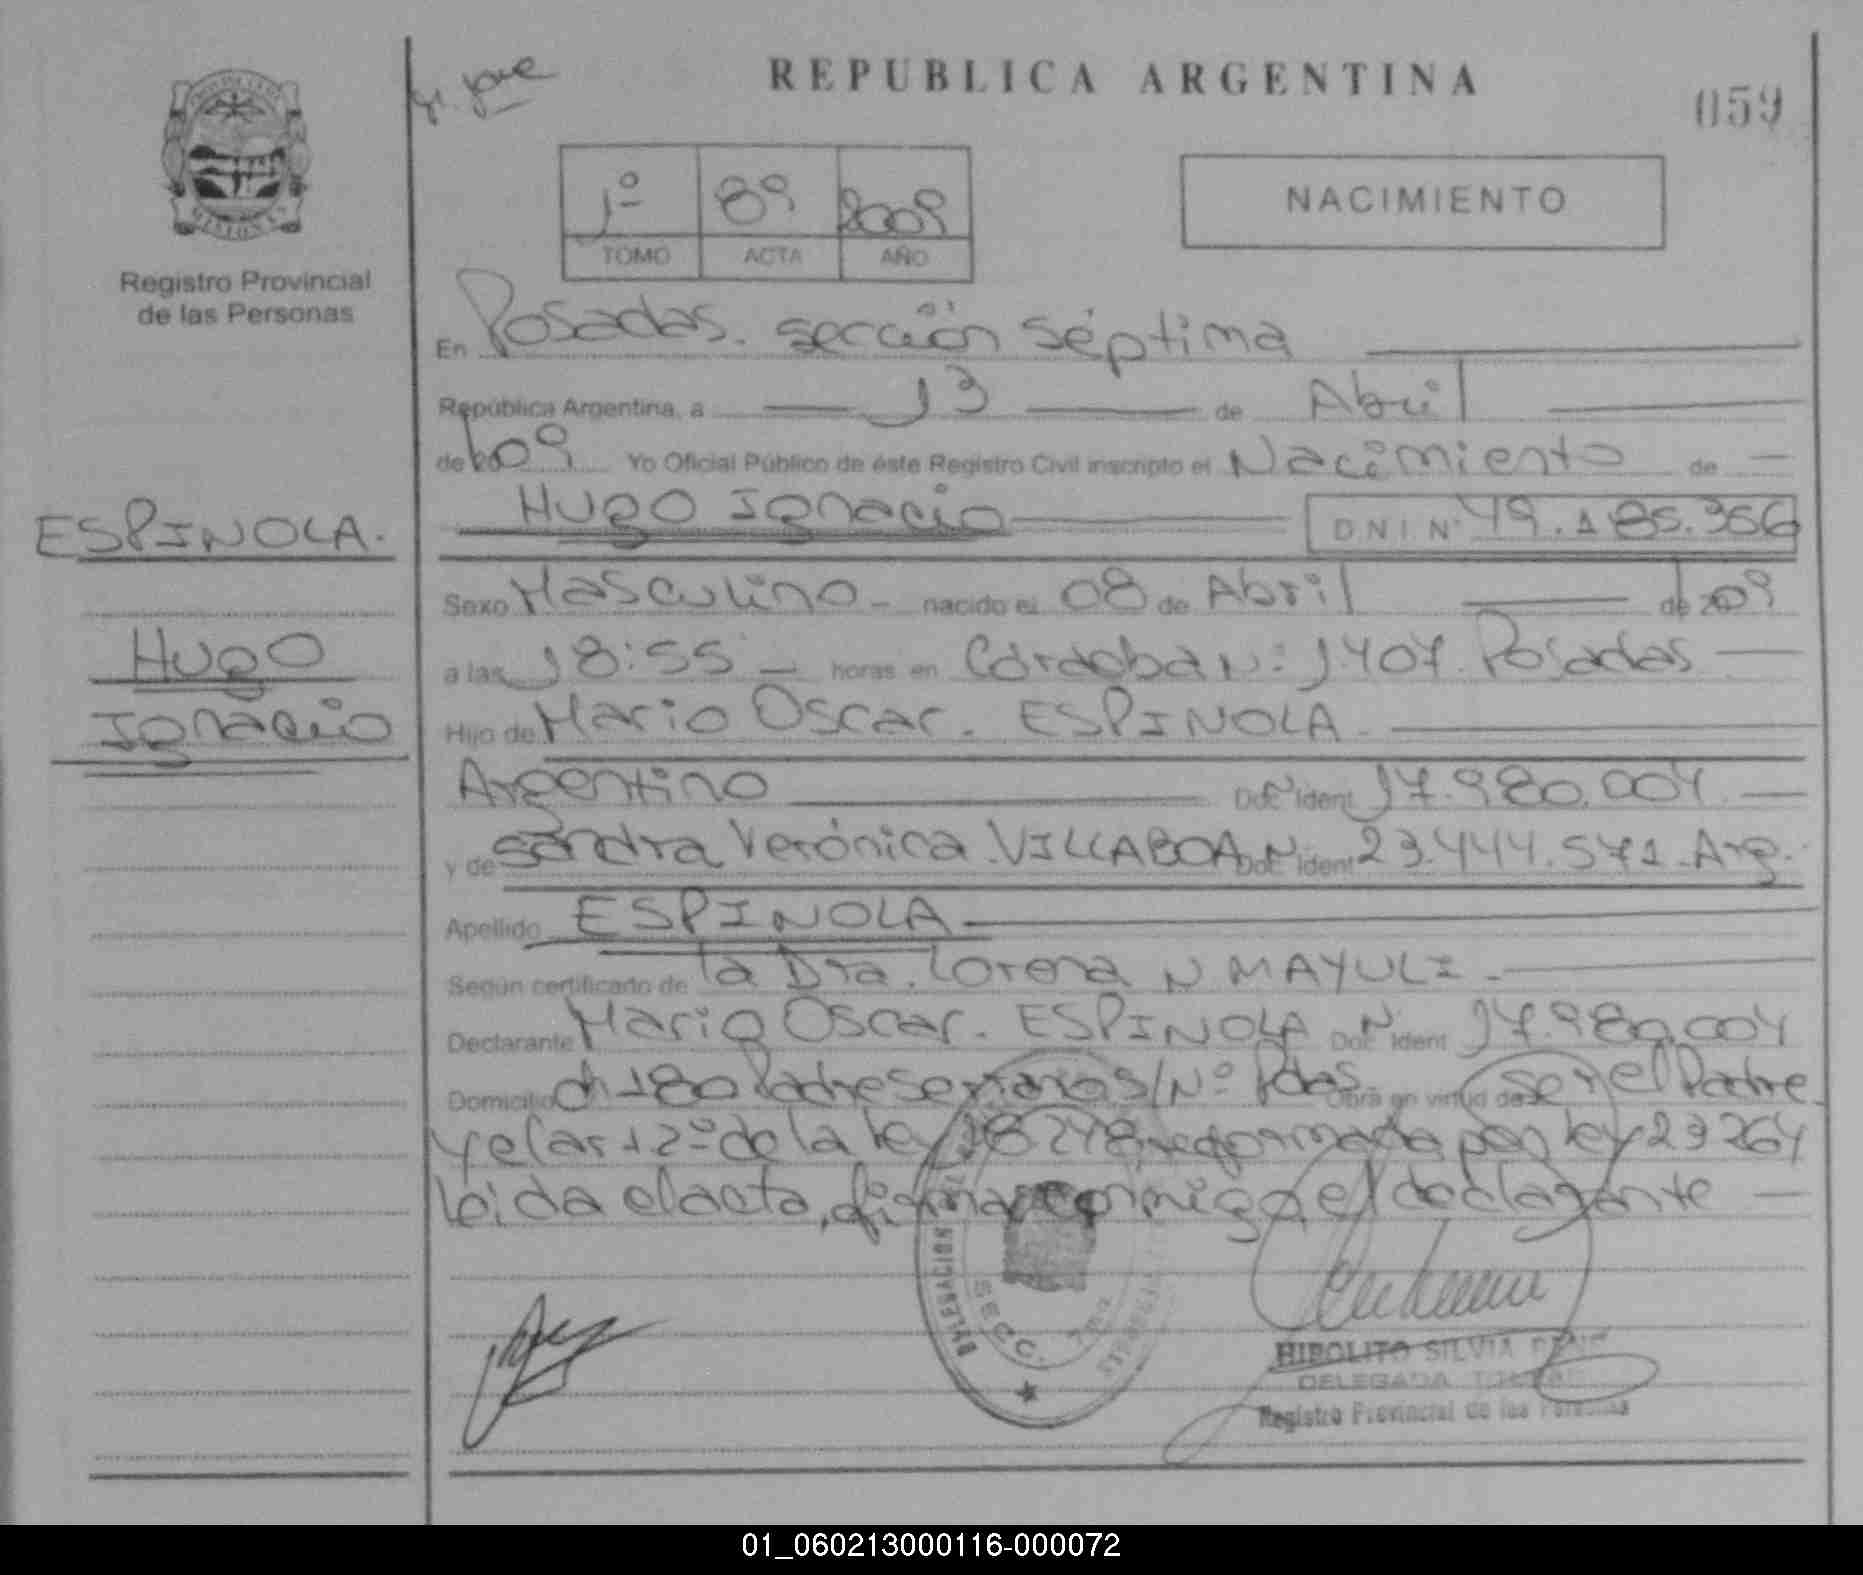 REPUBLICA ARGENTINA
059
PROVINCIA DE
MISIONES
Registro Provincial
de las Personas
1º 89 2009
TOMO ACTA AÑO
NACIMIENTO
En Posadas. sección séptima
República Argentina, a 13 de Abril
de 2009 Yo Oficial Público de éste Registro Civil inscripto el Nacimiento de
Hugo Ignacio DNI Nº 49.185.366
ESPINOLA.
Hugo
Ignacio
Sexo Masculino nacido el 08 de Abril de 2009
a las 18:55 horas en Córdoba Nº 1407. Posadas
Hijo de Mario Oscar. ESPINOLA.
Argentino Doc Nº Ident 17.980.004
y de Sandra Verónica. VILLABOA Doc Nº Ident 23.444.571. Arg.
Apellido ESPINOLA
Según certificado de la Dra. Lorena N MAYULI
Declarante Mario Oscar. ESPINOLA Doc Nº Ident 17.980.004
Domicilio ch 180 Padre Serrano S/Nº Pdas Obra en virtud de ser el Padre
y el art 2º de la ley 18248 reformada por ley 23264
leida el acta, firma conmigo, el declarante
DELEGACION
SECC. 7ma
HIPOLITO SILVIA RENE
DELEGADA TITULAR
Registro Provincial de las Personas
01_060213000116-000072